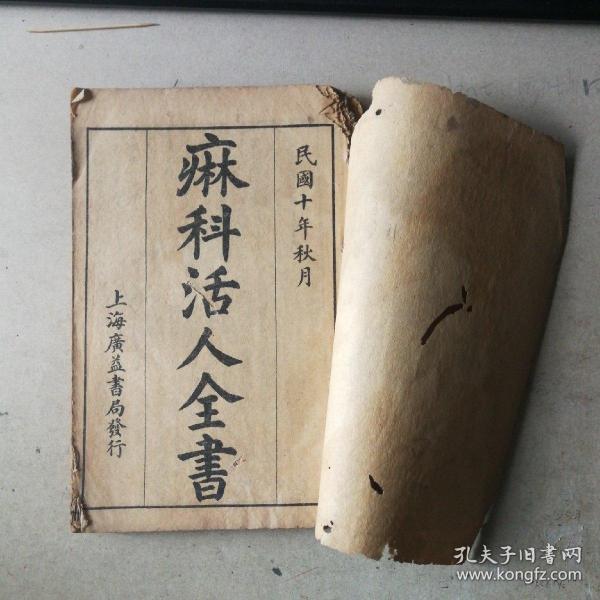 民國十年秋月
痳科活人全書
上海廣益書局發行
孔夫子旧书网
www.kongfz.com